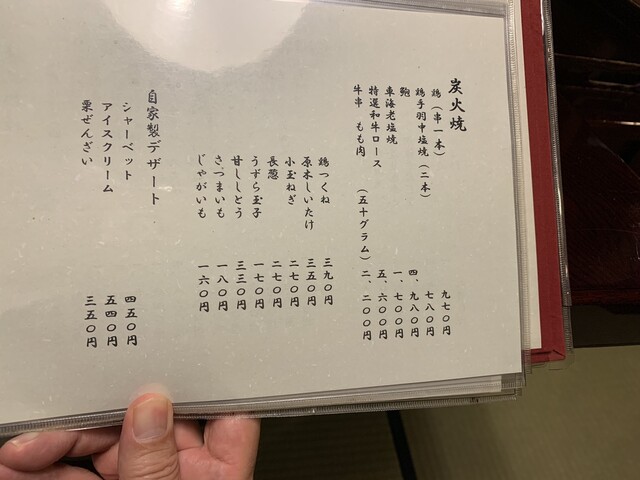 炭火焼
鶏（串一本） 九七〇円
鶏手羽中塩焼（二本） 七八〇円
鮑 四、九八〇円
車海老塩焼 一、七〇〇円
特選和牛ロース 五、六〇〇円
牛串 もも肉 （五十グラム） 二、二〇〇円
鶏つくね 三九〇円
原木しいたけ 三五〇円
小玉ねぎ 二七〇円
長葱 二七〇円
うずら玉子 一七〇円
甘ししとう 三三〇円
さつまいも 一八〇円
じゃがいも 一六〇円
自家製デザート
シャーベット 四五〇円
アイスクリーム 五四〇円
栗ぜんざい 三五〇円